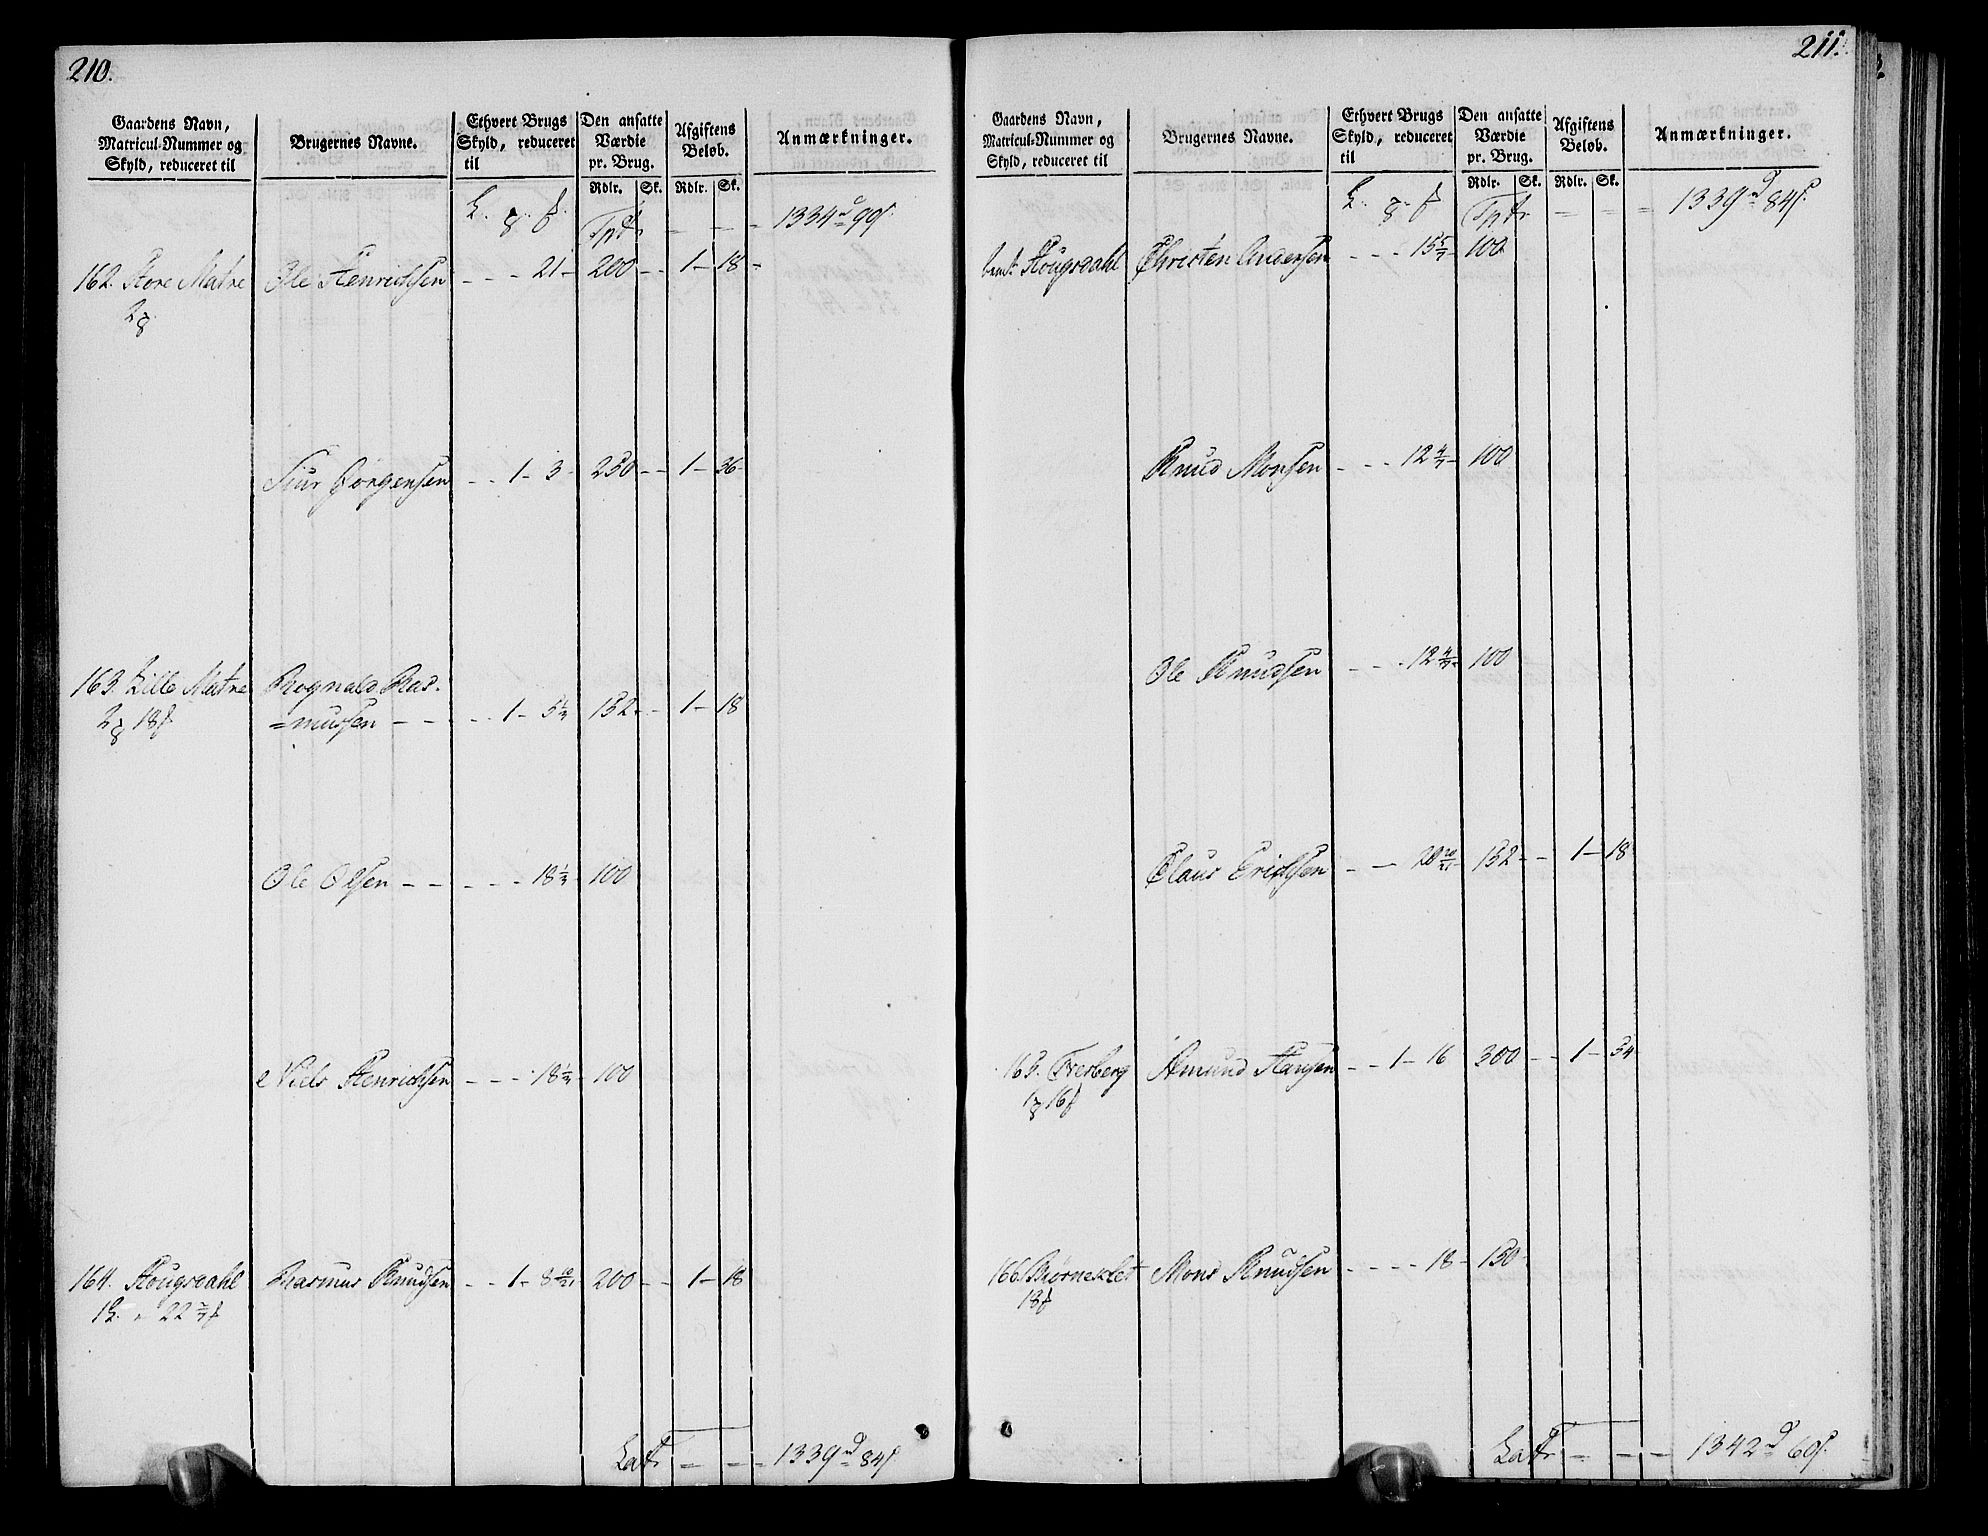 210.
Gaardens Navn, Matricul-Nummer og Skyld, reduceret til
Brugernes Navne.
Ethvert Brugs Skyld, reduceret til
Den ansatte Værdie pr. Brug.
Afgiftens Beløb.
Anmærkninger.
Rdlr. Sk. Rdlr. Sk.
Tptr - - - 1334 d 99 s.
162. Store Matre Ole Henrichsen - - - 21 - 200 - - 1 - 18 -
2
Siur Jørgensen - - 1 - 3 - 250 - - 1 - 36 -
163. Lille Matre Rognald Ras-
2 18 =mussen - - - - 1 - 5 1/3 - 132 - - 1 - 18
Ole Olsen - - - - - 18 1/3 - 100
Niels Henrichsen - - - 18 1/3 - 100
164. Hougsdahl Rasmus Knudsen - - 1 - 8 10/21 - 200 - - 1 - 18
1 L. " 22
Latr - - - 1339 d 84 s.
211.
Gaardens Navn, Matricul-Nummer og Skyld, reduceret til
Brugernes Navne.
Ethvert Brugs Skyld, reduceret til
Den ansatte Værdie pr. Brug.
Afgiftens Beløb.
Anmærkninger.
Rdlr. Sk. Rdlr. Sk.
Tptr = = = 1339 d 84 s.
Hougsdahl Christen Andersen - - - 15 5/7 - 100
Knud Monsen - - - 12 4/7 - 100
Ole Knudsen - - - 12 4/7 - 100
Claus Erichsen - - 20 20/21 - 132 - - 1 - 18
165. Tverberg Amund Hansen - - 1 - 16 300 - - 1 - 54
1 16
166. Biørneslet Mons Knudsen - - - - 18 - 150 -
18
Latr = - - 1342 d 60 s.